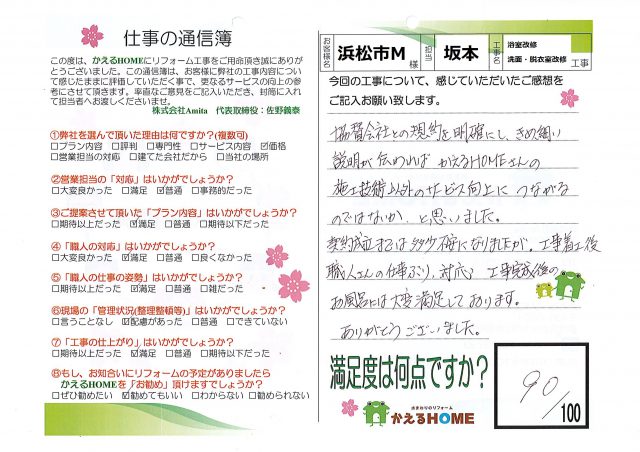 仕事の通信簿
この度は、かえるHOMEにリフォーム工事をご用命頂き誠にありが
とうございました。この通信簿は、お客様に弊社の工事内容につい
て感じたままに評価していただく事で、更なるサービスの向上の参
考にさせて頂きます。率直なご意見をご記入いただき、封筒に入れ
て担当者へお渡しくださいませ。
株式会社Amita 代表取締役：佐野義泰
①弊社を選んで頂いた理由は何ですか？(複数可)
□プラン内容 □評判 □専門性 □サービス内容 ☑価格
□営業担当の対応 □建てた会社だから □当社の場所
②営業担当の「対応」はいかがでしょうか？
□大変良かった □満足 ☑普通 □事務的だった
③ご提案させて頂いた「プラン内容」はいかがでしょうか？
□期待以上だった □満足 ☑普通 □期待以下だった
④「職人の対応」はいかがでしょうか？
□大変良かった ☑満足 □普通 □良くなかった
⑤「職人の仕事の姿勢」はいかがでしょうか？
□期待以上だった ☑満足 □普通 □雑だった
⑥現場の「管理状況(整理整頓等)」はいかがでしょうか？
□言うことなし ☑配慮があった □普通 □できていない
⑦「工事の仕上がり」はいかがでしょうか？
□期待以上だった ☑満足 □普通 □期待以下だった
⑧もし、お知合いにリフォームの予定がありましたら
かえるHOMEを「お勧め」頂けますでしょうか？
□ぜひ勧めたい ☑勧めてもいい □わからない □勧められない
お客様名 浜松市M 様 担当 坂本 工事名 浴室改修 洗面・脱衣室改修 工事
今回の工事について、感じていただいたご感想を
ご記入お願い致します。
協賛会社との規約を明確にし、きめ細い
説明が伝われば かえるHOMEさんの
施工技術以外のサービス向上に つながる
のではないか、と思いました。
契約成立するは多少不安になりましたが、工事着工後
職人さんの仕事ぶり、対応、工事完成後の
お風呂には大変満足しております。
ありがとうございました。
満足度は何点ですか？
90/100
水まわりのリフォーム
かえるHOME